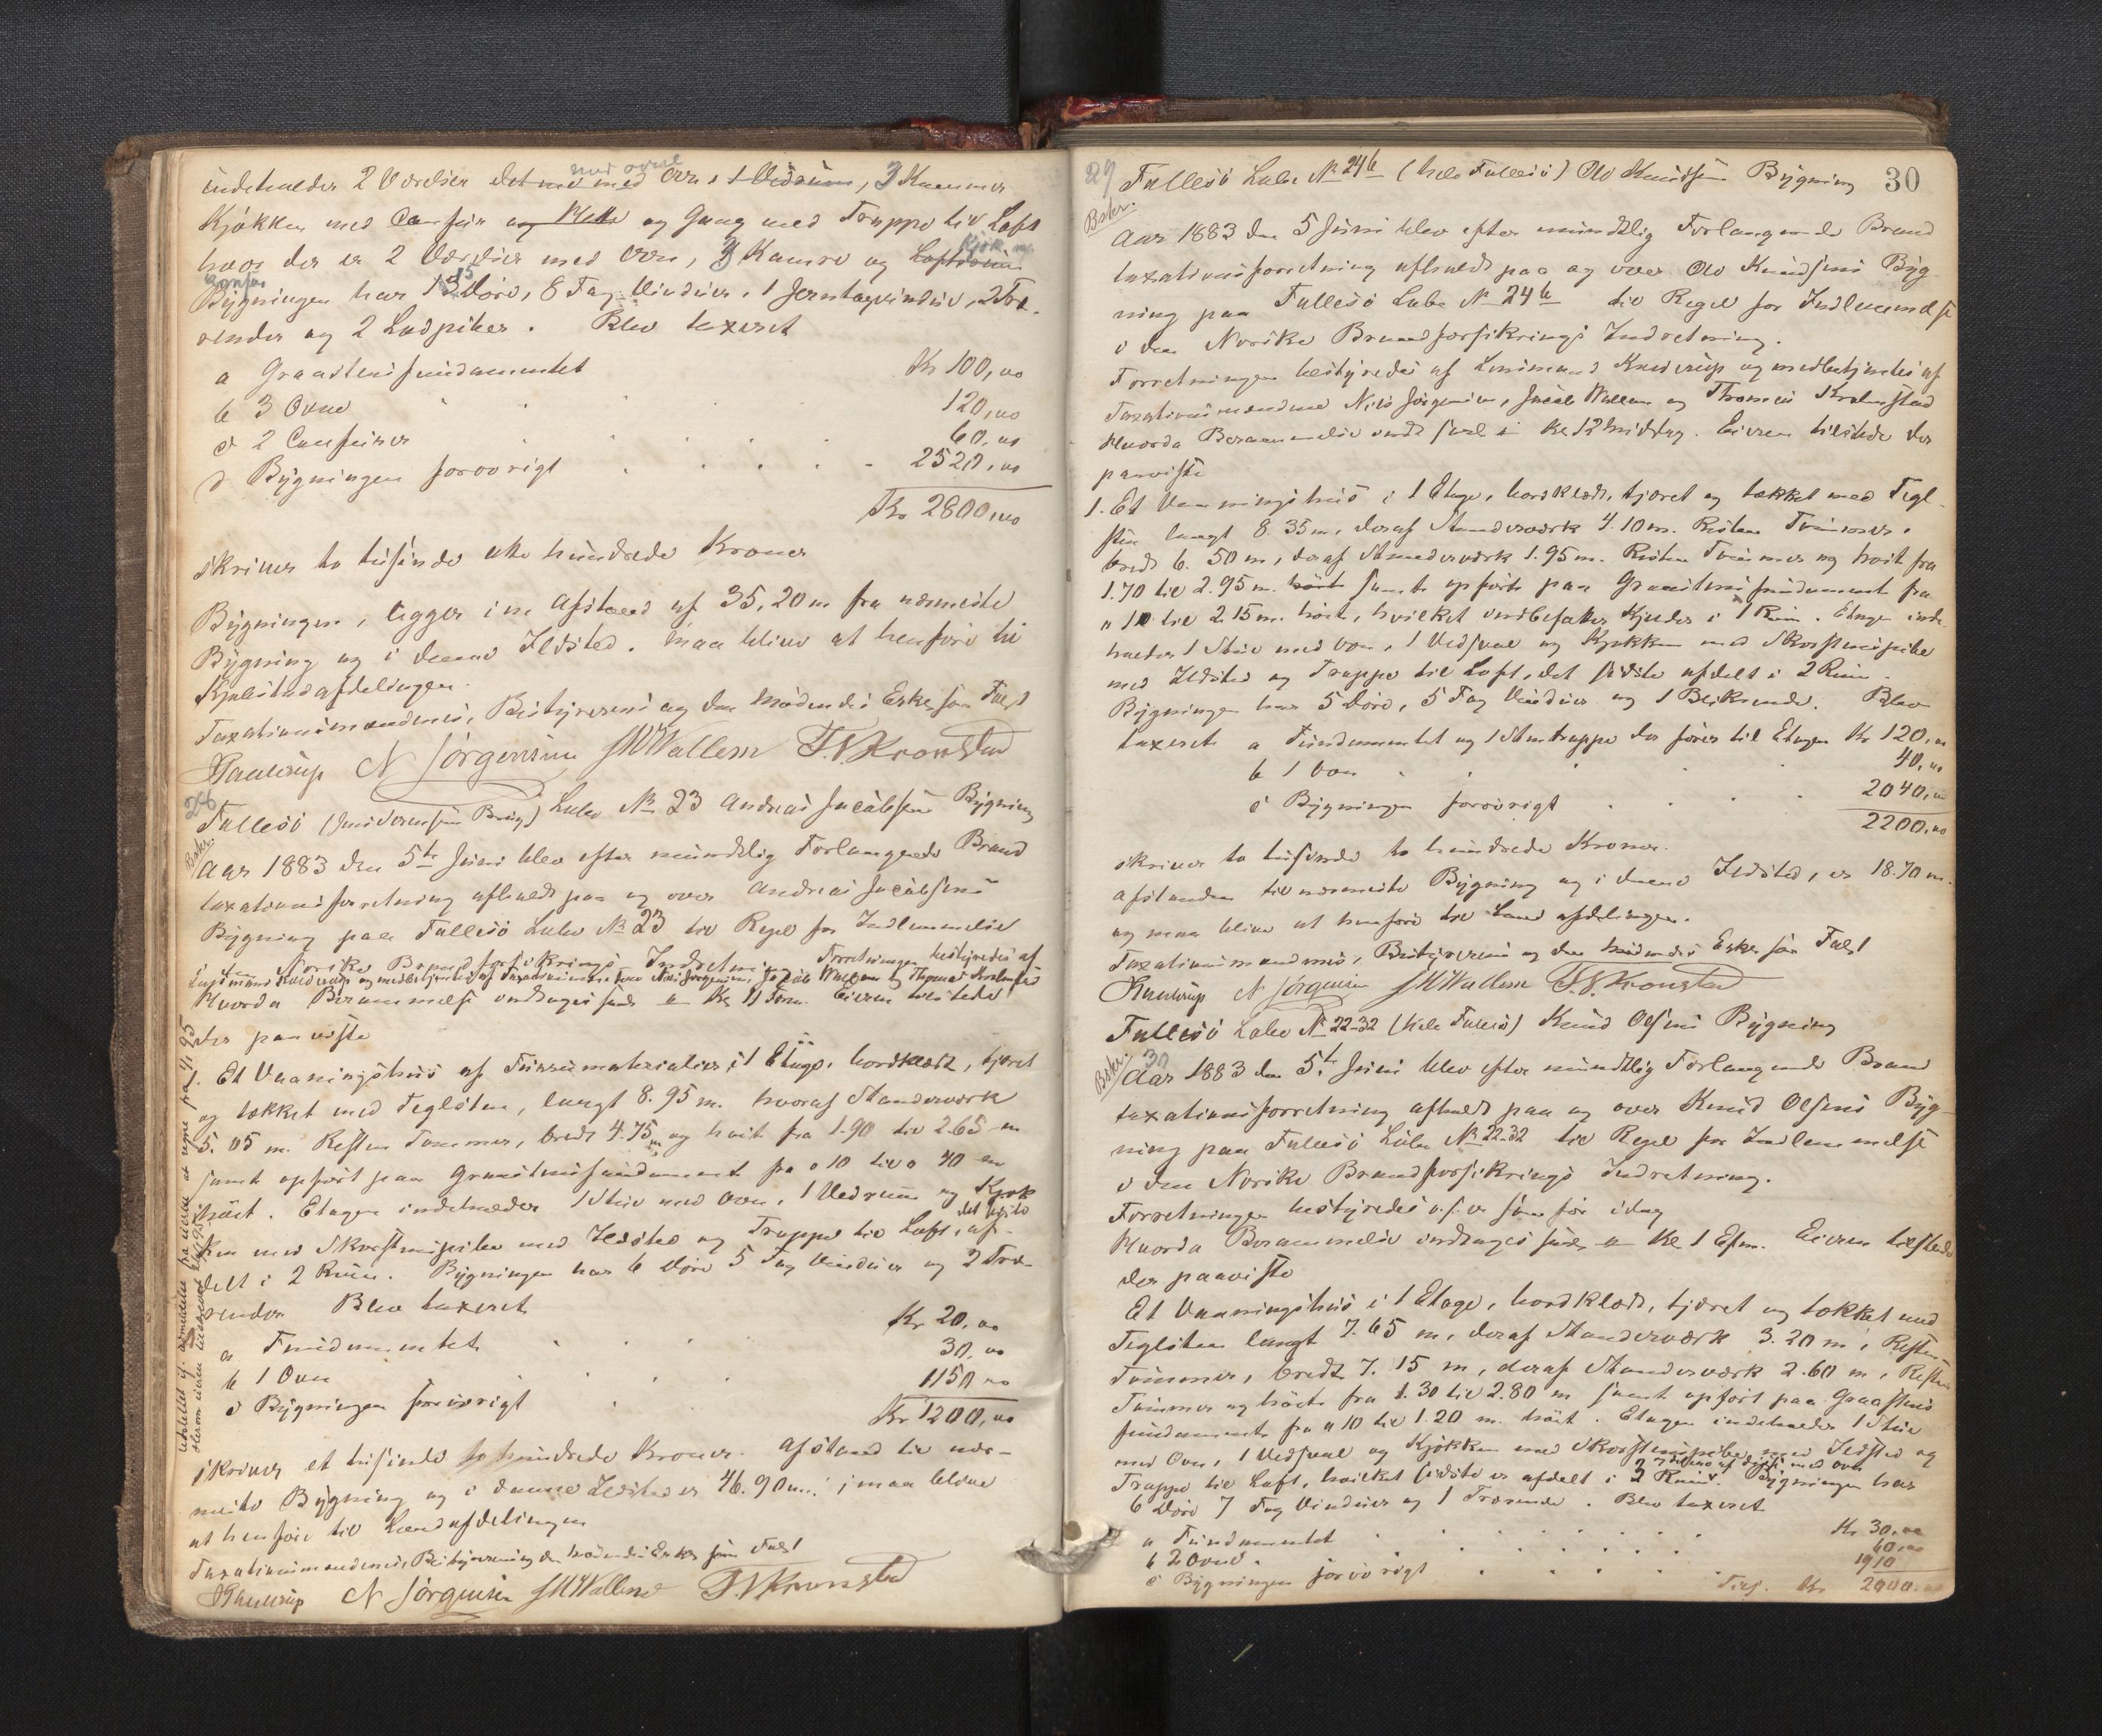 indeholder 2 Værelser det ene med Ovn, 1 Vedrum, 3 Kammer
med ovne
Kjøkken med Comfur og Gang med Trappe til Loft
hvor der er 2 Værelser med Ovn, 3 Kamre og Loftsrum
Kjøk. m.
Comfur
Bygningen har 15 Døre, 8 Fag Vinduer, 1 Jerntagvindue, 2 Tra-
render og 2 Ludpiber. Blev taxeret
a Graastensfundamentet Kr 100,00
b 3 Ovne 120,00
c 2 Comfurer 60,00
d Bygningen forøvrigt 2520,00
Kr 2800,00
skriver to tusinde otte hundrede Kroner
Bygningen, ligger i en Afstand af 35,20 m fra nærmeste
Bygning og i denne Ildsted. maa blive at henføre til
Kjøbstadafdelingen.
Taxationsmændenes, Bestyrerens og den mødendes Eskesön Fulgt
N Jörgensen J M Wallem T. N. Kronstad
28
Fullesö (Brug) Labo No 23 Andreas Jacobsens Bygning
Bskr.
Aar 1883 den 5te Juni blev efter mundtlig Forlangende Brand
taxationsforretning afholdt paa og over Andreas Jacobsens
Bygning paa Fullesö Labo No 23 til Regel for Indlemmelse
i den Norske Brandforsikrings Indretning Forretningen bestyredes af
Lensmand og medbetjentes af Taxationsmændene Niels Jörgensen, Jacob Wallem og Thomas Kronstad
Hvorda Berammelse undtoges Kl 11 Form. Eieren tilstede
der paaviste
1. Et Vaaningshus af Furumaterialier i 1 Etage, bordklædt, tjæret
og tækket med Teglsten, langt 8.95 m. hvoraf Standerværk
5.05 m. Resten Tømmer, bredt 4.75 m og høit fra 1.90 til 2.65 m
samt opført paa Graastensfundament fra 0 10 til 0 40 m
høit. Etagen indeholder 1 Stue med Ovn, 1 Vedrum og Kjøk
det sidste
ken med Skorstenspibe med Ildsted og Trappe til Loft, af-
delt i 2 Rum. Bygningen har 6 Døre 5 Fag Vinduer og 2 Tra-
render Blev taxeret
a Fundamentet Kr 20,00
b 1 Ovn 30,00
c Bygningen forøvrigt 1150 00
Kr 1200,00
skriver et tusinde to hundrede Kroner. Afstand til nær-
meste Bygning og i denne Ildsted er 46.90 m. maa blive
at henføre til Landafdelingen
Taxationsmændenes, Bestyrerens og den mødendes Eskesön Fulgt
N Jörgensen J M Wallem T. N. Kronstad
29
Fullesö Labo No 24b (hele Fullesö) Ole Knudsens Bygning 30
Bskr.
Aar 1883 den 5 Juni blev efter mundtlig Forlangende Brand
taxationsforretning afholdt paa og over Ole Knudsens Byg
ning paa Fullesö Labo No 24b til Regel for Indlemmelse
i den Norske Brandforsikrings Indretning.
Forretningen bestyredes af Lensmand og medbetjentes af
Taxationsmændene Niels Jörgensen, Jacob Wallem og Thomas Kronstad
Hvorda Berammelse Kl 12 Middag. Eieren tilstede der
paaviste
1. Et Vaaningshus i 1 Etage, bordklædt, tjæret og tækket med Tegl-
sten langt 8.35 m, deraf Standerværk 4.10 m. Resten Tømmer,
bredt 6.50 m, deraf Standerværk 1.95 m. Resten Tømmer og høit fra
1.70 til 2.95 m. samt opført paa Graastensfundament fra
0 10 til 2.15 m. høit, hvilket indbefatter Kjælder i 1 Rum. Etagen inde-
holder 1 Stue med Ovn, 1 Vedsval og Kjøkken med Skorstenspibe
med Ildsted og Trappe til Loft, det sidste afdelt i 2 Rum.
Bygningen har 5 Døre, 5 Fag Vinduer og 1 Blikrende. Blev
taxeret a Fundamentet og 1 Stentrappe der fører til Etagen Kr 120,00
b 1 Ovn 40,00
c Bygningen forøvrigt 2040,00
2200,00
skriver to tusinde to hundrede Kroner.
Afstanden til nærmeste Bygning og i denne Ildsted, er 18.70 m.
og maa blive at henføre til Landafdelingen.
Taxationsmændenes, Bestyrerens og den mødendes Eskesön Fulgt
N Jörgensen J M Wallem T. N. Kronstad
Fullesö Labo No 22-32 (hele Fullesö) Knud Olsens Bygning
30
Bskr.
Aar 1883 den 5te Juni blev efter mundtlig Forlangende Brand
taxationsforretning afholdt paa og over Knud Olsens Byg-
ning paa Fullesö Labo No 22-32 til Regel for Indlemmelse
i den Norske Brandforsikrings Indretning.
Forretningen bestyredes o.s.v. som før idag
Hvorda Berammelse undtoges Kl 1 Efm. Eieren tilstede
der paaviste
Et Vaaningshus i 1 Etage, bordklædt, tjæret og tækket med
Teglsten langt 7.65 m, deraf Standerværk 3.20 m, Resten
Tømmer, bredt 7.15 m, deraf Standerværk 2.60 m, Resten
Tømmer og høit fra 1.30 til 2.80 m samt opført paa Graastens
fundament fra 0 10 til 1.20 m. høit. Etagen indeholder 1 Stue
med Ovn, 1 Vedsval og Kjøkken med Skorstenspibe med Ildsted og
Trappe til Loft, hvilket sidste er afdelt i 2 Rum. Bygningen har
6 Døre 7 Fag Vinduer og 1 Trærende. Blev taxeret
a Fundamentet Kr 30,00
b 2 Ovne 60,00
c Bygningen forøvrigt 1910
Kr 2000,00